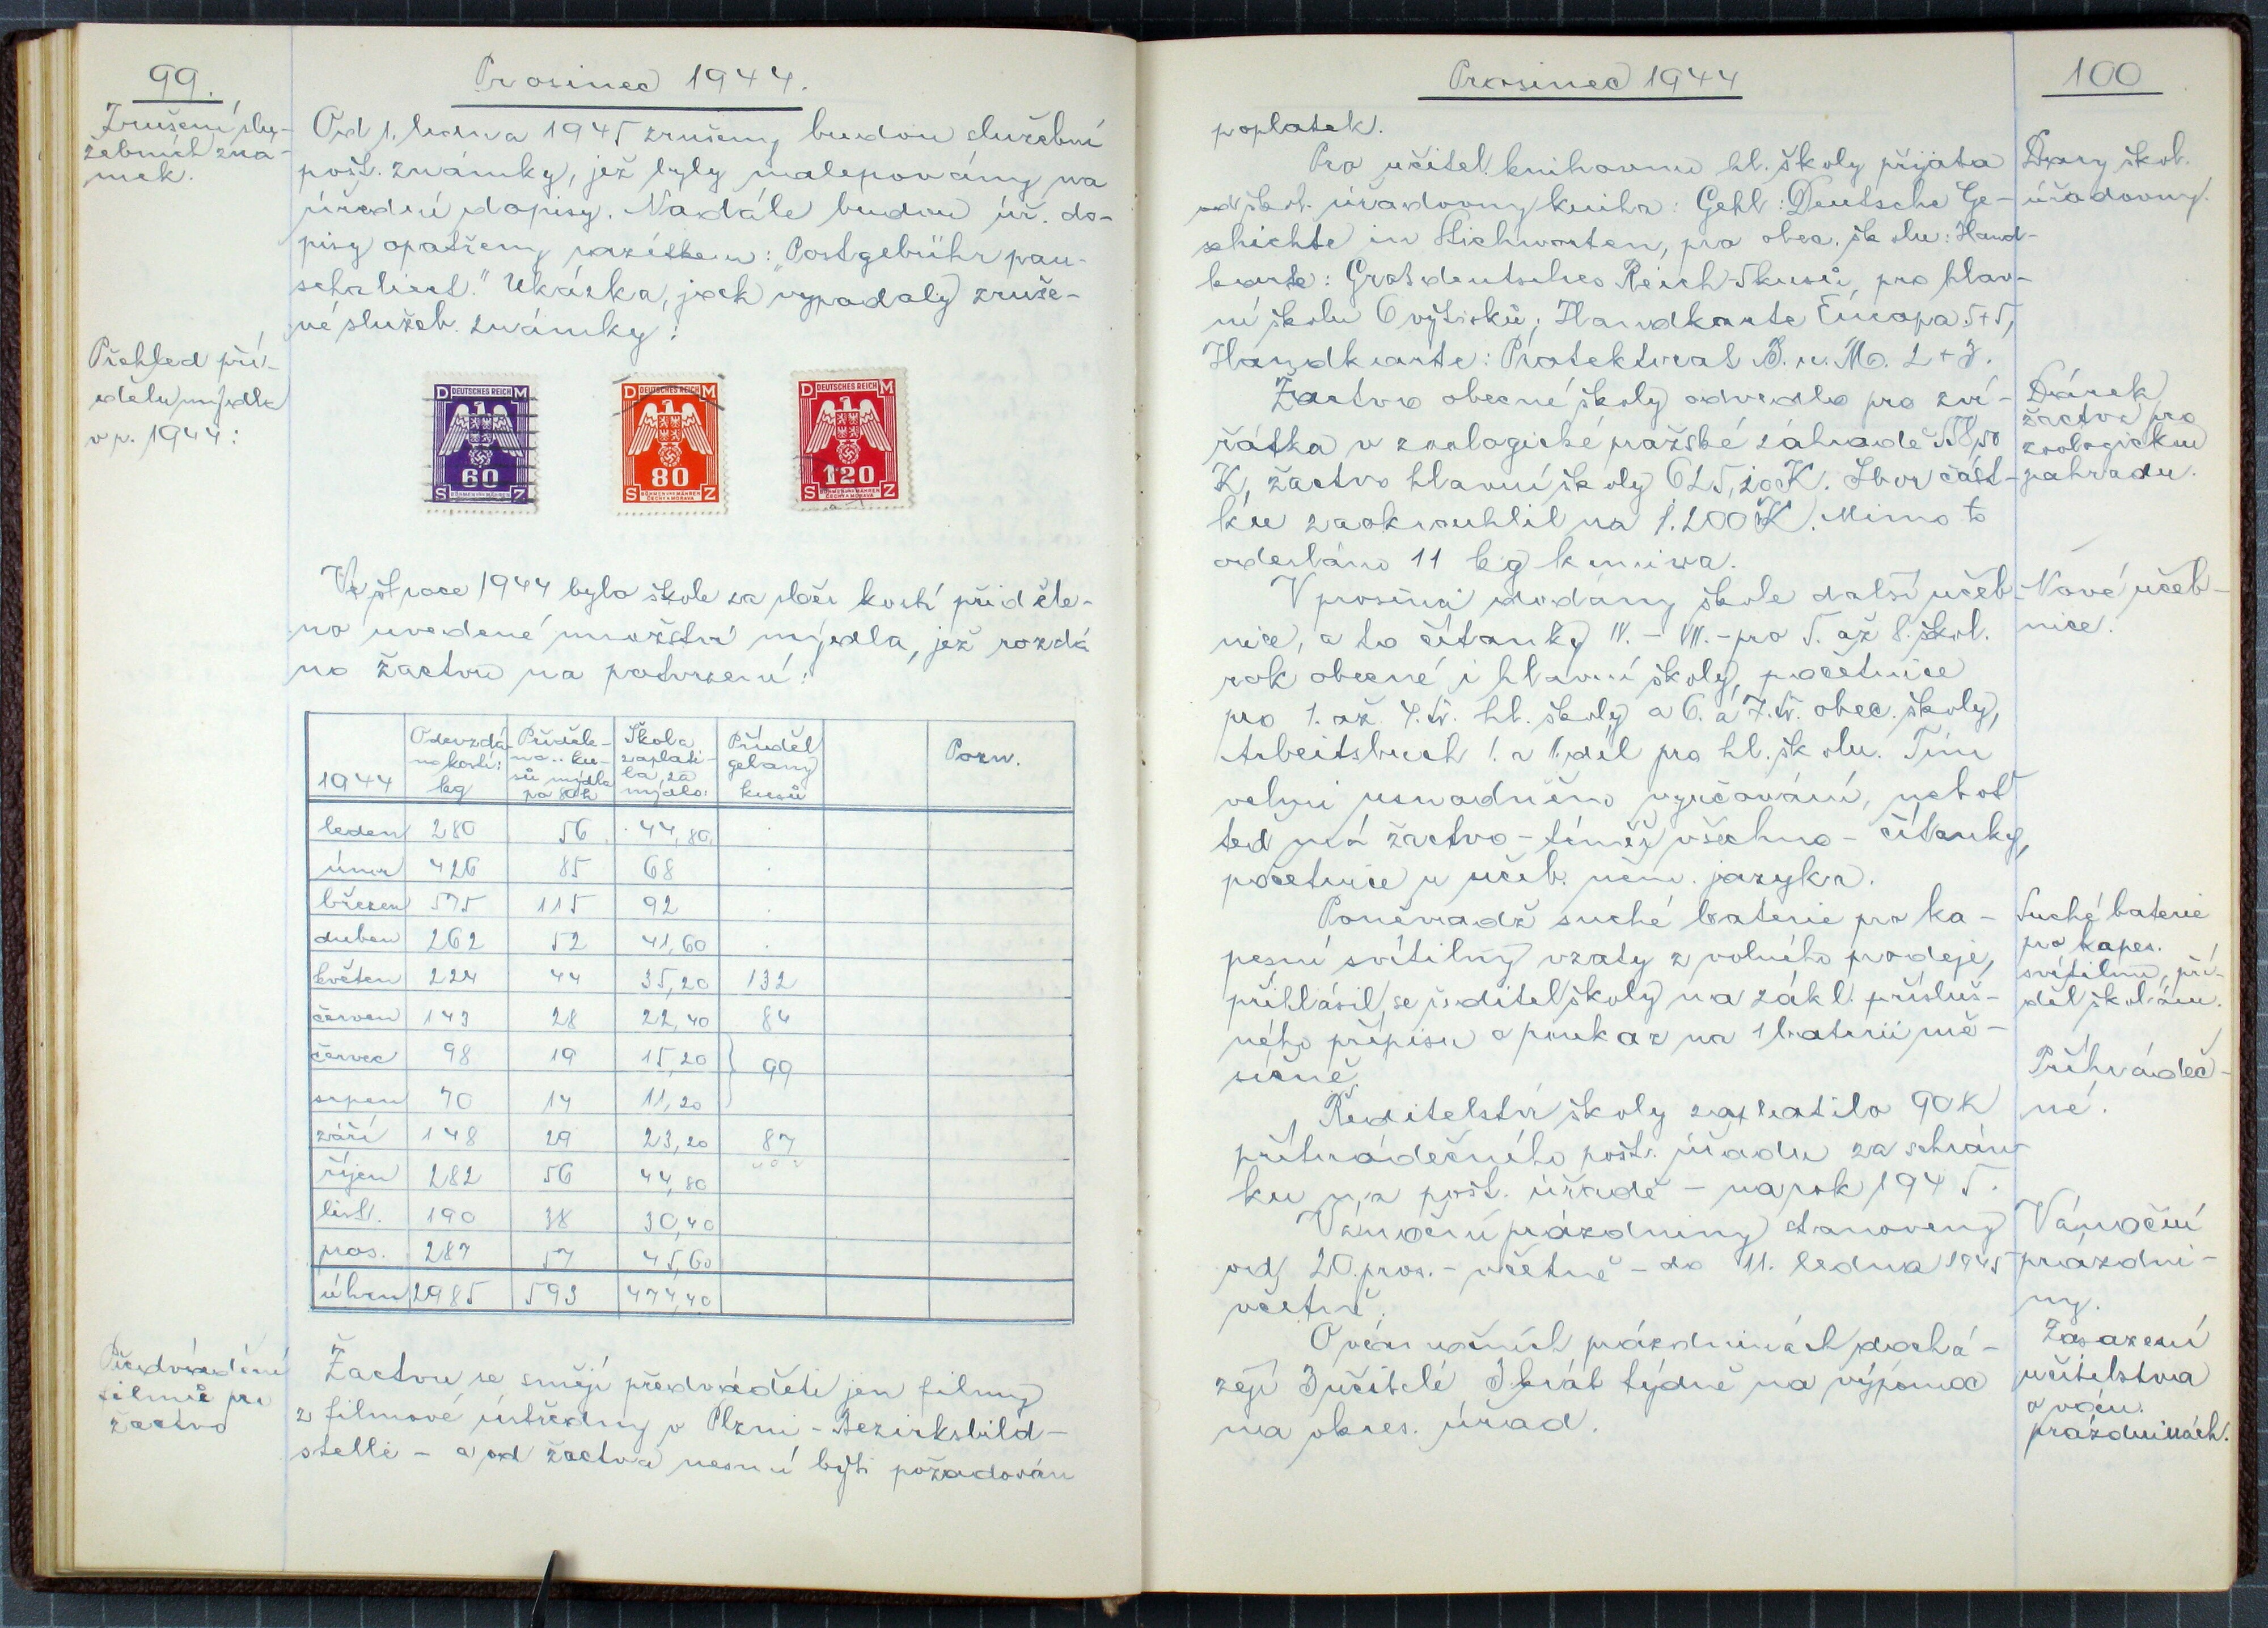 99.
Prosinec 1944.
Zrušení slu-
žebních zná-
mek.
Od 1. ledna 1945 zrušeny budou služební
pošt. známky, jež byly nalepovány na
úřední dopisy. Nadále budou úř. do-
pisy opatřeny razítkem: "Postgebühr pau-
schaliert." Ukázka, jak vypadaly zruše-
né služeb. známky:
Přehled pří-
dělu mýdla
v r. 1944:
D DEUTSCHES REICH M
60
S BÖHMEN UND MÄHREN Z
ČECHY A MORAVA
D DEUTSCHES REICH M
80
S BÖHMEN UND MÄHREN Z
ČECHY A MORAVA
D DEUTSCHES REICH M
120
S BÖHMEN UND MÄHREN Z
ČECHY A MORAVA
V roce 1944 bylo škole za sběr kostí přiděle-
no uvedené množství mýdla, jež rozdá
no žactvu na potvrzení:
1944 | Odevzdá-no kostí: kg | Přiděle-no .. ku-sů mýdla po 80 h | Škola zaplati-la za mýdlo: | Příděl gelany kusů | Pozn.
leden 280 56 44,80
únor 426 85 68
březen 575 115 92
duben 262 52 41,60
květen 224 44 35,20 132
červen 143 28 22,40 84
červec 98 19 15,20 } 99
srpen 70 14 11,20
září 148 29 23,20 87
říjen 282 56 44,80
list. 190 38 30,40
pros. 287 57 45,60
úhrn 2985 593 474,40
Předvádění
filmů pro
žactvo
Žactvu se smějí předváděti jen filmy
z filmové ústředny v Plzni - Bezirksbild-
stelle - a od žactva nesmí býti požadován
Prosinec 1944
100
poplatek.
Pro učitel. knihovnu hl. školy přijata
od škol. úřadovny kniha: Gehl: Deutsche Ge-
schichte in Stichworten, pro obec. školu: Hand-
karte: Grossdeutsches Reich 5 kusů, pro hlav-
ní školu 6 výtisků; Handkarte Europa 5+5,
Handkarte: Protektorat B. u. M. 2+3.
Dary škol.
úřadovny.
Žactvo obecné školy odvedlo pro zví-
řátka v zoologické pražské záhradě 58,50
K, žactvo hlavní školy 625,20 K. Sbor část-
ku zaokrouhlil na 1.200 K. Mimo to
odesláno 11 kg krmiva.
Dárek
žactva pro
zoologickou
zahradu.
V prosinci dodány škole další učeb-
nice, a to čítanky IV. - VII. - pro 5. až 8. škol.
rok obecné i hlavní školy, početnice
pro 1. až 4. tř. hl. školy a 6. a 7. tř. obec. školy,
Arbeitsbuch I. a II. díl pro hl. školu. Tím
velmi usnadněno vyučování, neboť
teď má žactvo - téměř všechno - čítanky,
početnice a učeb. něm. jazyka.
Nové učeb-
nice.
Poněvadž suché baterie pro ka-
pesní svítilny vzaty z volného prodeje,
přihlásil se ředitel školy na zákl. přísluš-
ného přípisu o poukaz na 1 baterii mě-
síčně.
Suché baterie
pro kapes.
svítilnu, pří-
děl školám.
Ředitelství školy zaplatilo 90 K
přihrádečného pošt. úřadu za schrán-
ku na pošt. úřadě - na rok 1945.
Přihrádeč-
né.
Vánoční prázdniny stanoveny
od 20. pros. - včetně - do 11. ledna 1945
včetně.
Vánoční
prázdni-
ny.
O vánočních prázdninách dochá-
zejí 3 učitelé 3krát týdně na výpomoc
na okres. úřad.
Zasazení
učitelstva
o ván.
prázdninách.